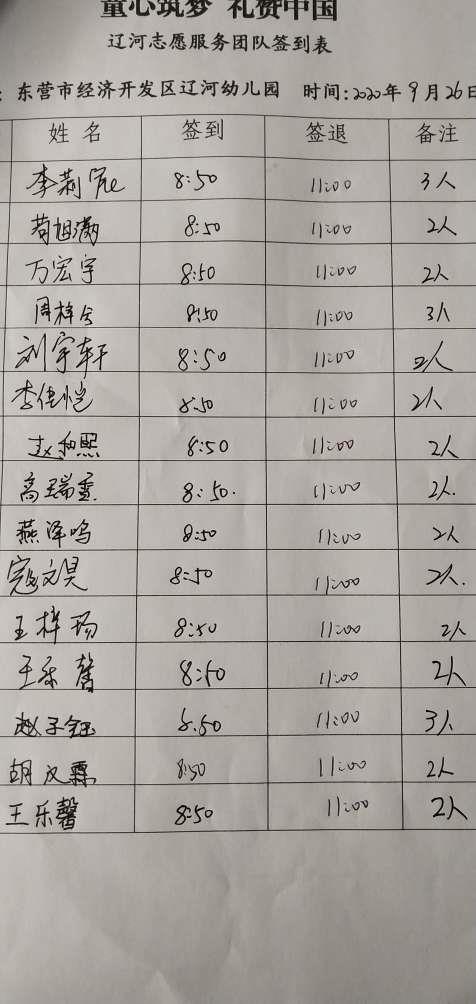 童心筑梦 礼赞中国
辽河志愿服务团队签到表
：东营市经济开发区辽河幼儿园 时间:2020年9月26日
姓名 签到 签退 备注
李莉 8:50 11:00 3人
苟旭满 8:50 11:00 2人
万宏宇 8:50 11:00 2人
周梓 8:50 11:00 3人
刘宇轩 8:50 11:00 2人
李佳恺 8:50 11:00 2人
赵和熙 8:50 11:00 2人
高瑞雪 8:50. 11:00 2人.
燕泽鸣 8:50 11:00 2人
寇文昊 8:50 11:00 2人.
王梓玚 8:50 11:00 2人
王乐馨 8:50 11:00 2人
赵子钰 8:50 11:00 3人
胡文霖 8:50 11:00 2人
王乐馨 8:50 11:00 2人